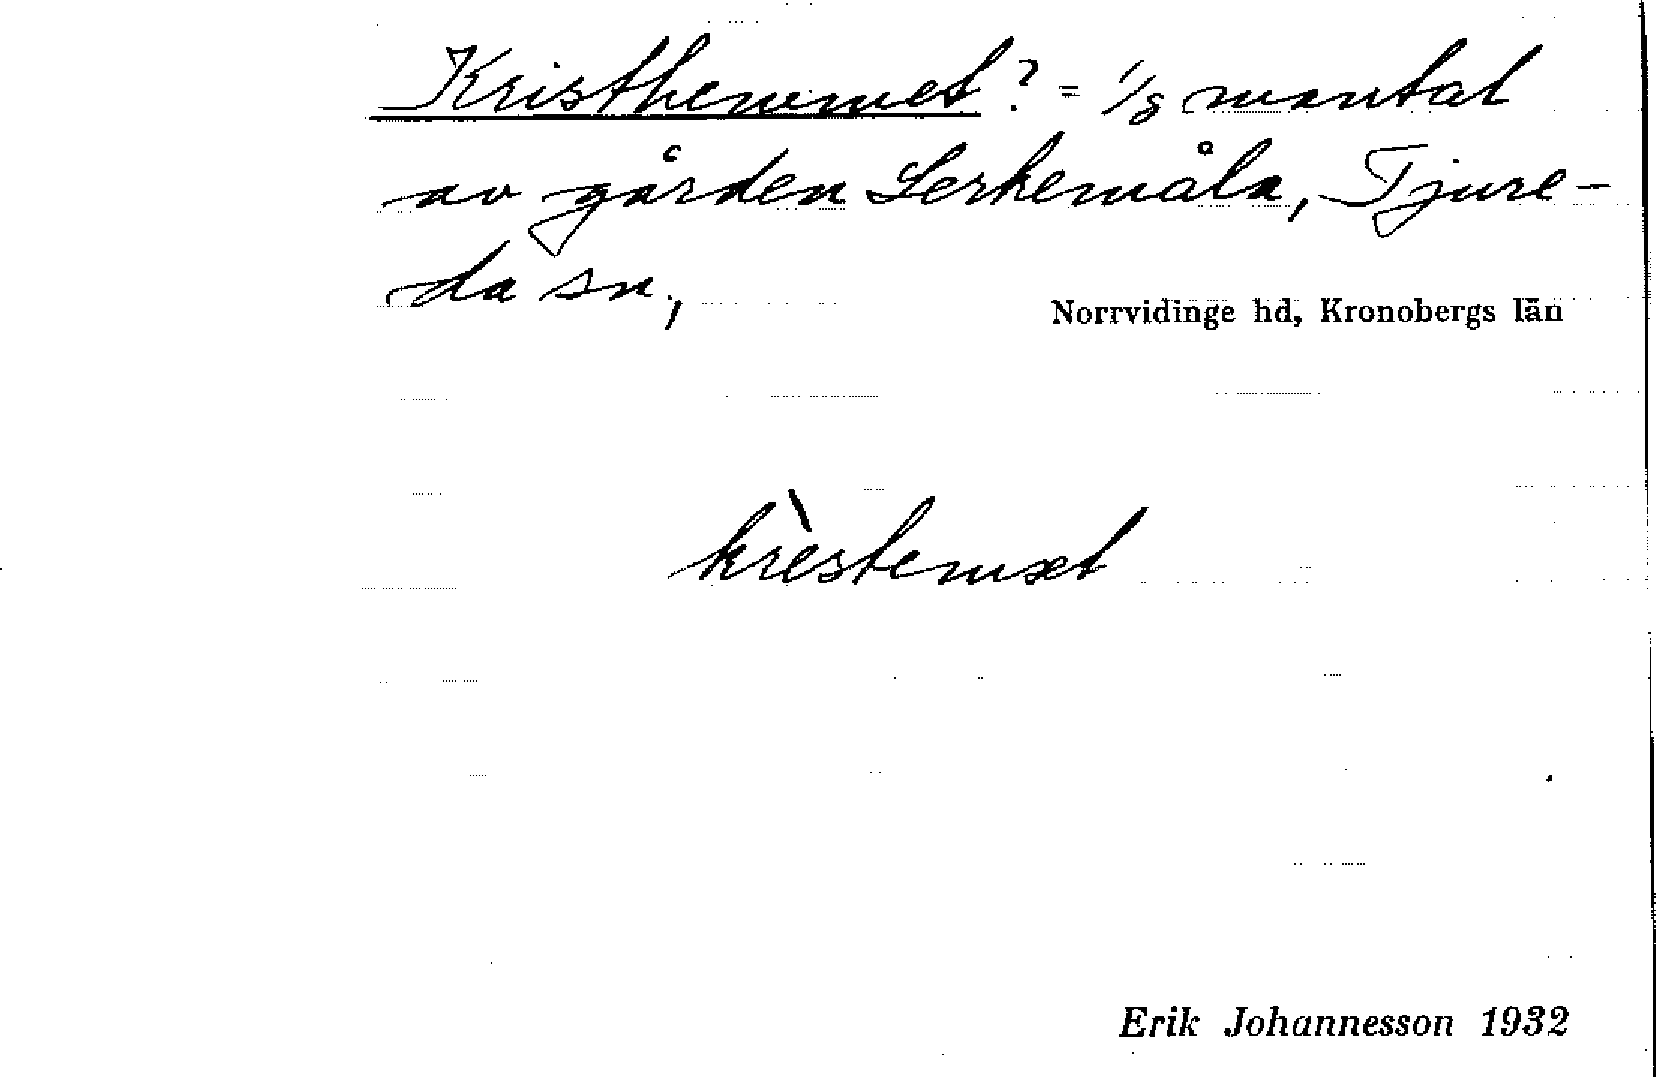 Kristhemmet? = 1/8 mantal
av gården Lerkemåla, Tjure-
da sn,
Norrvidinge hd, Kronobergs län
krèstemæt
Erik Johannesson 1932